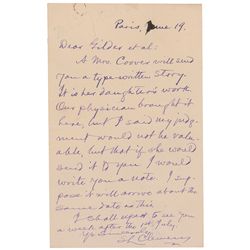 Paris, June 19.
Dear Gilder et al:
A Mrs. Coover will send
you a type-written story.
It is her daughter's work.
Our physician brought it
here, but I said my judg-
ment would not be valu-
able, but that if she would
send it to you I would
write you a note. I sup-
pose it will arrive about the
same date as this.
I shall expect to see you
a week after the 1st July.
Yrs sincerely,
SL Clemens